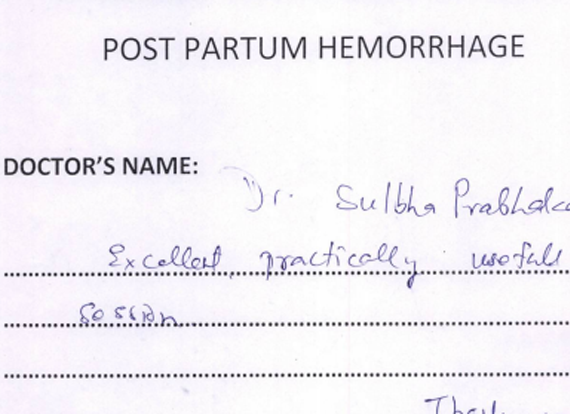 POST PARTUM HEMORRHAGE
DOCTOR'S NAME:
Dr. Sulbha
Excellent, practically usefull
session